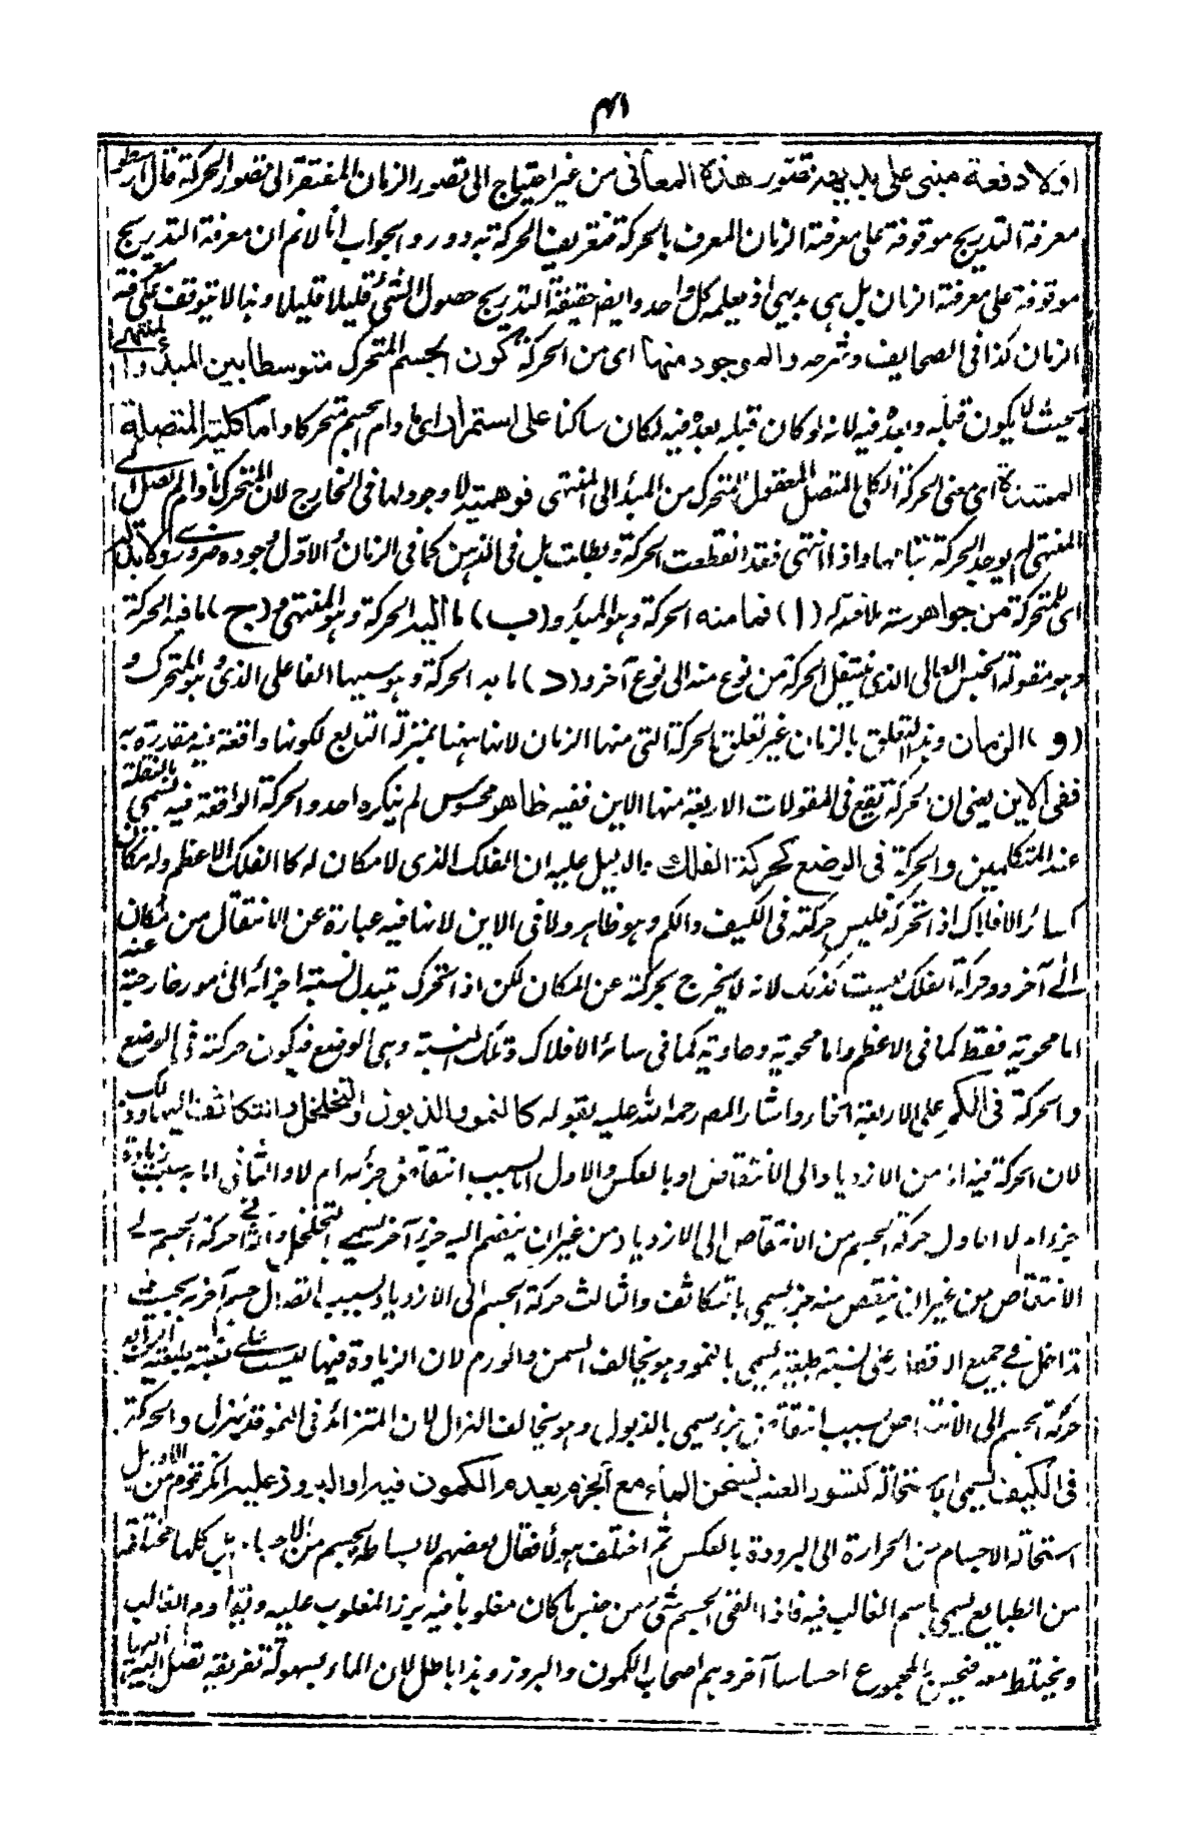 ۴۱
اولا دفعة مبنى على بديهة تصور هذه المعانى من غير احتياج الى تصور الزمان المفتقر الى تصور الحركة قال ارسطو
معرفة التدريج موقوفة على معرفة الزمان المعرف بالحركة فتعريف الحركة به دور والجواب انا لا نم ان معرفة التدريج
موقوفة على معرفة الزمان بل هى بديهى اذ يعلمه كل واحد وايض حقيقة التدريج حصول الشئ قليلا قليلا وهذا لا يتوقف على معرفة
الزمان كذا فى الصحايف وشرحه والموجود منها اى من الحركة كون الجسم المتحرك متوسطا بين المبدأ والمنتهى
بحيث لا يكون قبله وبعده فيه لانه لو كان قبله بعده فيه لكان ساكنا على استمرار اى ما دام الجسم متحركا واما كلية المتصلة
الممتدة اى معنى الحركة الكلى المتصل المعقول للمتحرك من المبدأ الى المنتهى فوهمية لا وجود لها فى الخارج لان المتحرك ما لم يصل الى
المنتهى لم يوجد الحركة بتمامها واذا انتهى فقد انقطعت الحركة وبطلت بل فى الذهن كما فى الزمان الاول وجوده ضرورى ولا بد لها
اى للحركة من جواهر ستة علاقة (ا) فما منه الحركة وهو المبدأ و(ب) ما اليه الحركة وهو المنتهى و(ج) ما فيه الحركة
وهو مقولة الجنس العالى الذى ينتقل الحركة من نوع منه الى نوع آخر و(د) ما به الحركة وهو سببها الفاعلى الذى هو المتحرك و
(و) الزمان وهذا التعلق بالزمان غير تعلق الحركة التى منها الزمان لانها ههنا بمنزلة التابع لكونها واقعة فيه مقدرة به
ففى الاين يعنى ان الحركة تقع فى المقولات الاربعة منها الاين ففيه ظاهر محسوس لم ينكره احد والحركة الواقعة فيه تسمى بالنقلة
عند المتكلمين والحركة فى الوضع كحركة الفلك والدليل عليه ان الفلك الذى لا مكان له كالفلك الاعظم وله مكان
كسائر الافلاك اذا تحرك فليس حركته فى الكيف والكم وهو ظاهر ولا فى الاين لانها فيه عبارة عن الانتقال من مكان
الى آخر وحركة الفلك ليست كذلك لانه لا يخرج بحركته عن المكان لكن اذا تحرك يتبدل نسبة اجزائه الى امور خارجة عنه
اما محوية فقط كما فى الاعظم واما محوية وحاوية كما فى سائر الافلاك وتلك النسبة وهى الوضع فيكون حركته فى الوضع
والحركة فى الكم على الاربعة انحاء واشار المصر رحمة الله عليه بقوله كالنمو والذبول والتخلخل والتكاثف اليها وذلك
لان الحركة فيه اما من الازدياد الى الانتقاض او بالعكس والاول اما بسبب انتقاض جزء ام لا والثانى اما بسبب زيادة
جزء ام لا اما ول حركة الجسم من الانتقاص الى الازدياد من غير ان ينضم اليه جزء آخر يسمى التخلخل والثانى حركة الجسم الى
الانتقاص من غير ان ينقص منه جزء يسمى بالتكاثف والثالث حركة الجسم الى الازدياد بسبب اتصال جسم آخر به بحيث
تداخل فى جميع الاقطار على نسبة طبيعية يسمى بالنمو وهو يخالف السمن والورم لان الزيادة فيها ليست على نسبة طبيعية الرابع
حركة الجسم الى الانتقاص بسبب انتقاص جزء يسمى بالذبول وهو يخالف الهزال لان المتزائد فى النمو قد ينزل والحركة
فى الكيف تسمى باستحالة كتسود العنب وتسخن الماء مع الجزم بعدم الكمون فيه او البروز عليه انكر قوم من الاوائل
استحالة الاجسام من الحرارة الى البرودة بالعكس ثم اختلف هولاء فقال بعضهم لا بساطة لجسم من الاجسام بل كلها مختلطة
من الطبايع يسمى باسم الغالب فيه فاذا القى الجسم شئ من جنس ما كان مغلوبا فيه يبرز المغلوب عليه ويقاوم الغالب
ويختلط معه فيحس بالمجموع احساسا آخر وهم اصحاب الكمون والبروز وهذا باطل لان الماء لسهولة تفريقه تصل اليد